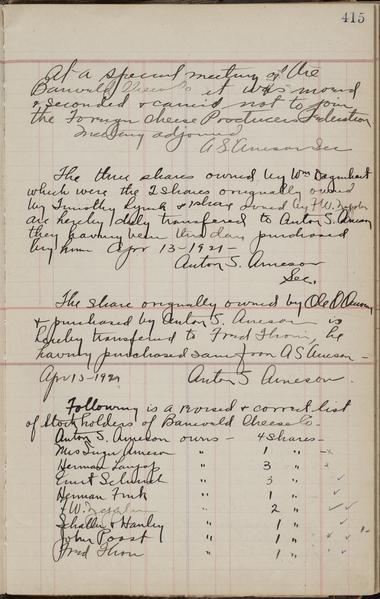 415
At a special meeting of the
Barneveld Cheese Co it was moved
& seconded & carried not to join
the Foreign Cheese Producers Federation
Meeting adjourned
A S Arneson Sec
The three shares owned by Wm Dagenhart
which were the 2 shares originally owned
by Timothy Lynch & 1 share owned by F. W.
are hereby duly transfered to Anton S. Arneson
they having been this day purchased
by him Apr 13 - 1921 -
Anton S. Arneson
Sec.
The share originally owned by Ole O. Arneson
& purchased by Anton S. Arneson is
hereby transfered to Fred Thoni, he
having purchased same from A S Arneson -
Apr 13 - 1921 Anton S Arneson.
Following is a revised & correct list
of Stockholders of Barneveld Cheese Co.
Anton S. Arneson owns - 4 shares -
Mrs Arneson " 1 "
Herman " 3 "
Schmidt " 3 "
Herman Fink " 1 "
F. W. " 2 "
Schaller & Hanley " 1 "
John Posst " 1 "
Fred Thoni " 1 "